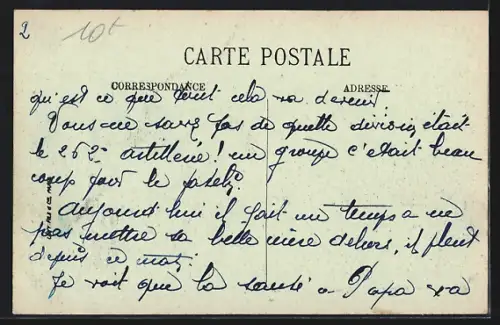 2
10t
CARTE POSTALE
CORRESPONDANCE
ADRESSE
qu'est ce que tout cela va devenir
Vous ne savez pas de quelle division était
le 262e artillerie! un groupe c'etait beau
coup pour le
Aujourd hui il fait un temps a ne
pas mettre sa belle mère dehors, il pleut
depuis ce matin.
Je voit que la santé a Papa va